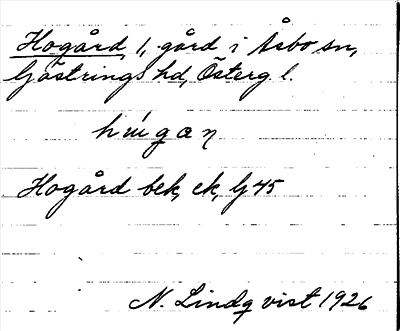 Hogård, 1, gård i Åsbo sn,
Göstrings hd, Österg l.
Hogård bek, ek, G 45
N. Lindqvist 1926